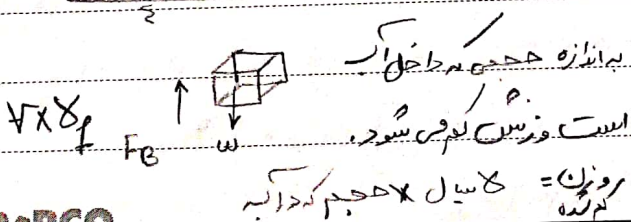 به اندازه حجمی که داخل آب
است وزنش کم می شود.
∀×γf
FB
ω
وزن کم شده = γ سیال × حجم که در آبه